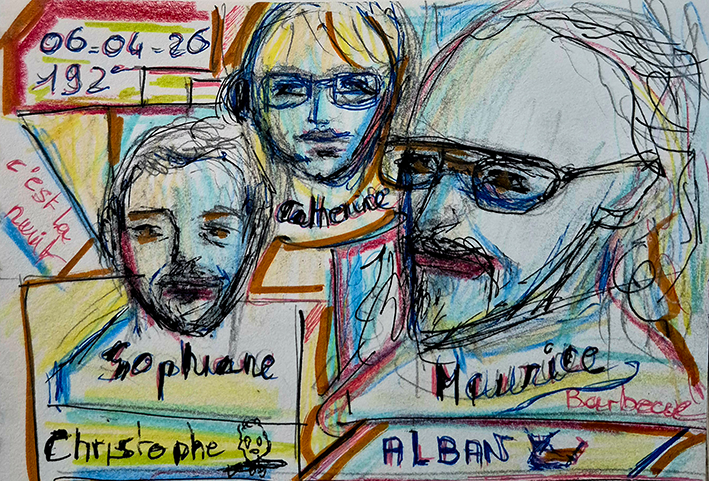 06-04-26
192
c'est la
nuit
Catherine
Sophiane
Maurice
Barbecue
Christophe
ALBAN